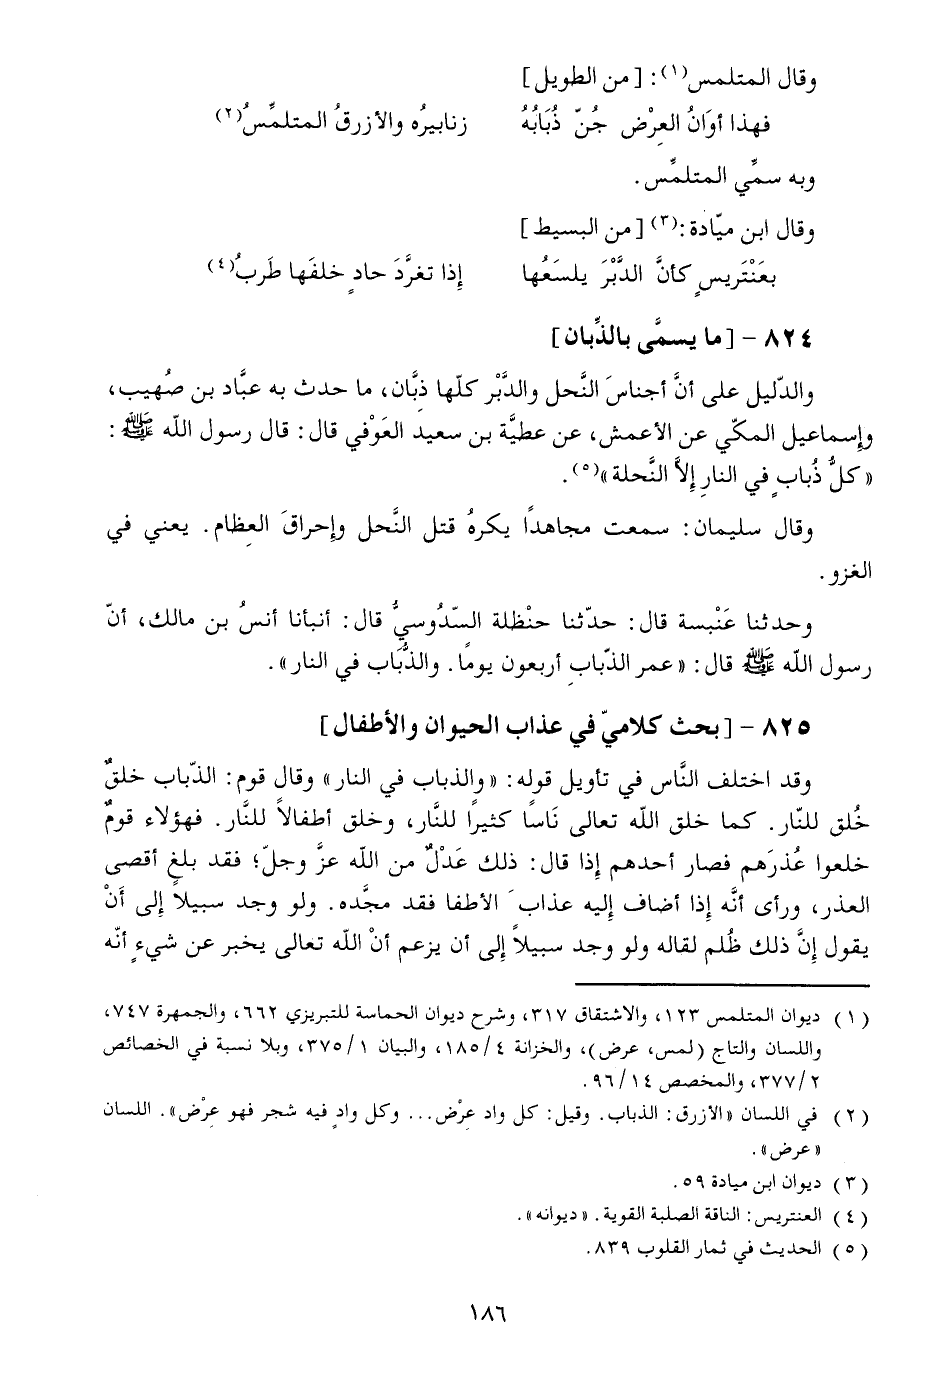 وقال المتلمس(١): [من الطويل]
فهذا أوَانُ العِرْض جُنّ ذُبَابُهُ زنابيرُه والأزرقُ المتلمِّسُ(٢)
وبه سمِّي المتلمِّس.
وقال ابن ميّادة:(٣) [من البسيط]
بعَنْتَريسٍ كأنَّ الدَّبْرَ يلسَعُها إذا تغرَّدَ حادٍ خلفَها طَربُ(٤)
٨٢٤ - [ما يسمَّى بالذِّبان]
والدّليل على أنَّ أجناسَ النَّحل والدَّبْر كلّها ذِبَّان، ما حدث به عبَّاد بن صُهيب،
وإسماعيل المكّي عن الأعمش، عن عطيَّة بن سعيد العَوْفي قال: قال رسول الله ﷺ:
«كلُّ ذُبابٍ في النارِ إلاَّ النَّحلة»(٥).
وقال سليمان: سمعت مجاهداً يكرهُ قتل النَّحل وإحراقَ العِظام. يعني في
الغزو.
وحدثنا عَنْبسة قال: حدّثنا حنْظلة السّدُوسيُّ قال: أنبأنا أنسُ بن مالك، أنّ
رسول الله ﷺ قال: «عمر الذّبابِ أربعون يوماً. والذُّبَّاب في النار».
٨٢٥ - [بحث كلاميّ في عذاب الحيوان والأطفال]
وقد اختلف النَّاس في تأويل قوله: «والذباب في النار» وقال قوم: الذّباب خلقٌ
خُلق للنّار. كما خلق الله تعالى نَاساً كثيراً للنَّار، وخلق أطفالاً للنَّار. فهؤلاء قومٌ
خلعوا عُذرَهم فصار أحدهم إذا قال: ذلك عَدْلٌ من الله عزَّ وجلّ؛ فقد بلغ أقصى
العذر، ورأى أنَّه إذا أضاف إليه عذابَ الأطفا فقد مجَّده. ولو وجد سبيلاً إلى أنْ
يقول إنَّ ذلك ظُلم لقاله ولو وجد سبيلاً إلى أن يزعم أنْ الله تعالى يخبر عن شيءٍ أنّه
(١) ديوان المتلمس ١٢٣، والاشتقاق ٣١٧، وشرح ديوان الحماسة للتبريزي ٦٦٢، والجمهرة ٧٤٧،
واللسان والتاج (لمس، عرض)، والخزانة ٤/١٨٥، والبيان ١/٣٧٥، وبلا نسبة في الخصائص
٢/٣٧٧، والمخصص ١٤/٩٦.
(٢) في اللسان «الأزرق: الذباب. وقيل: كل واد عِرْض... وكل وادٍ فيه شجر فهو عِرْض». اللسان
«عرض».
(٣) ديوان ابن ميادة ٥٩.
(٤) العنتريس: الناقة الصلبة القوية. «ديوانه».
(٥) الحديث في ثمار القلوب ٨٣٩.
١٨٦